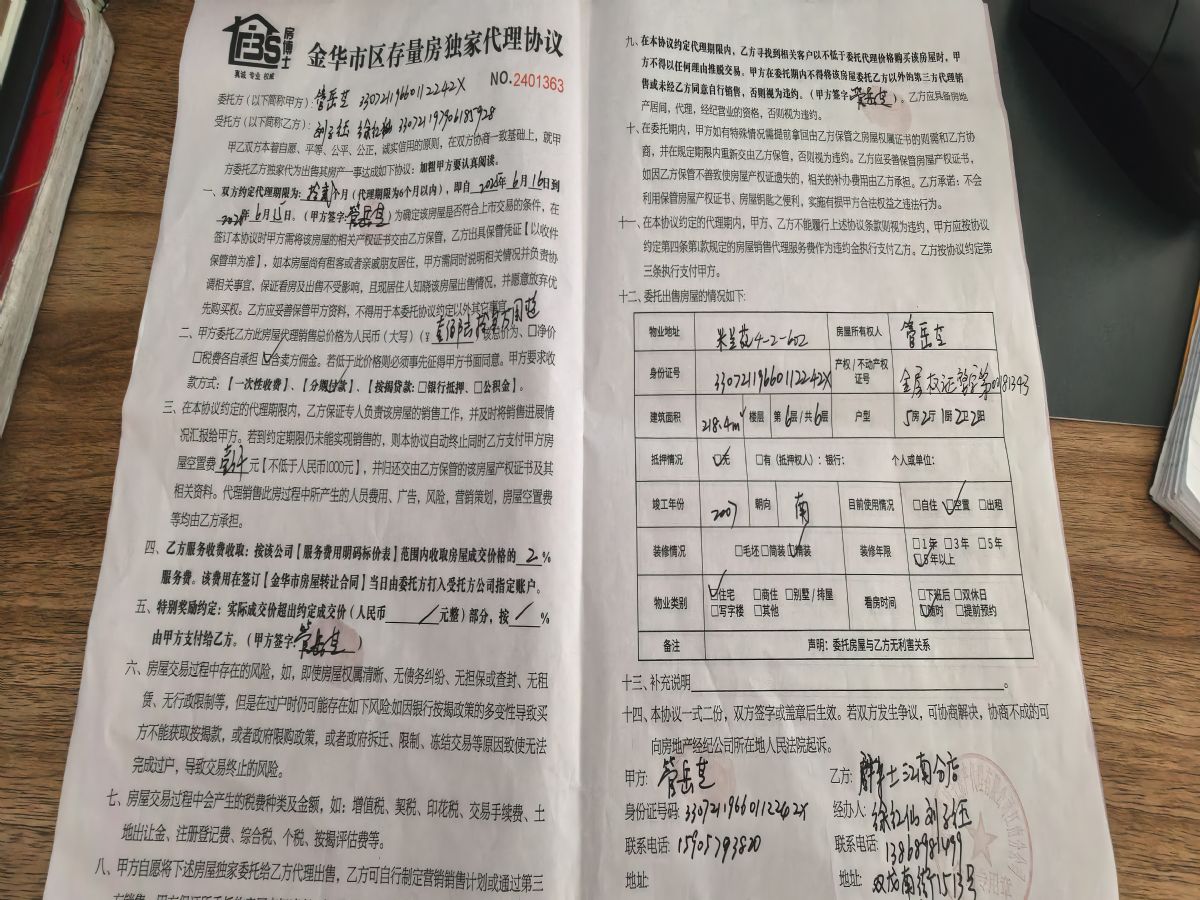 房博士
真诚 专业 权威
金华市区存量房独家代理协议
NO.2401363
委托方（以下简称甲方）：管岳芝 33072119660112242X
受托方（以下简称乙方）：徐红仙 330721197906185928
甲乙双方本着自愿、平等、公平、公正，诚实信用的原则，在双方协商一致基础上，就甲
方委托乙方独家代为出售其房产一事达成如下协议：加粗甲方要认真阅读。
一、双方约定代理期限为：个月（代理期限为6个月以内），即自2025年6月16日到
年6月15日。（甲方签字：管岳芝）为确定该房屋是否符合上市交易的条件，在
签订本协议时甲方需将该房屋的相关产权证书交由乙方保管，乙方出具保管凭证【以收件
保管单为准】，如本房屋尚有租客或者亲戚朋友居住，甲方需同时说明相关情况并负责协
调相关事宜，保证看房及出售不受影响，且现居住人知晓该房屋出售情况，并愿意放弃优
先购买权。乙方应妥善保管甲方资料，不得用于本委托协议约定以外其它事宜
二、甲方委托乙方此房屋代理销售总价格为人民币（大写）（¥ 该总价为、☐净价
☐税费各自承担 ☑含卖方佣金。若低于此价格则必须事先征得甲方书面同意。甲方要求收
款方式：【一次性收费】、【分期付款】、【按揭贷款：☐银行抵押、☐公积金】。
三、在本协议约定的代理期限内，乙方保证专人负责该房屋的销售工作，并及时将销售进展情
况汇报给甲方。若到约定期限仍未能实现销售的，则本协议自动终止同时乙方支付甲方房
屋空置费壹仟元【不低于人民币1000元】，并归还交由乙方保管的该房屋产权证书及其
相关资料。代理销售此房过程中所产生的人员费用、广告，风险，营销策划，房屋空置费
等均由乙方承担。
四、乙方服务收费收取：按该公司【服务费用明码标价表】范围内收取房屋成交价格的 2 %
服务费。该费用在签订【金华市房屋转让合同】当日由委托方打入受托方公司指定账户。
五、特别奖励约定：实际成交价超出约定成交价（人民币 / 元整）部分，按 / %
由甲方支付给乙方。（甲方签字：管岳芝）
六、房屋交易过程中存在的风险，如，即使房屋权属清晰、无债务纠纷、无担保或查封、无租
赁、无行政限制等，但是在过户时仍可能存在如下风险:如因银行按揭政策的多变性导致买
方不能获取按揭款，或者政府限购政策，或者政府拆迁、限制、冻结交易等原因致使无法
完成过户，导致交易终止的风险。
七、房屋交易过程中会产生的税费种类及金额，如：增值税、契税、印花税、交易手续费、土
地出让金、注册登记费、综合税、个税、按揭评估费等。
八、甲方自愿将下述房屋独家委托给乙方代理出售，乙方可自行制定营销销售计划或通过第三
九、在本协议约定代理期限内，乙方寻找到相关客户以不低于委托代理价格购买该房屋时，甲
方不得以任何理由推脱交易。甲方在委托期内不得将该房屋委托乙方以外的第三方代理销
售或未经乙方同意自行销售，否则视为违约。（甲方签字管岳芝）。乙方应具备房地
产居间，代理，经纪营业的资格，否则视为违约。
十、在委托期内，甲方如有特殊情况需提前拿回由乙方保管之房屋权属证书的则需和乙方协
商，并在规定期限内重新交由乙方保管，否则视为违约。乙方应妥善保管房屋产权证书，
如因乙方保管不善致使房屋产权证遗失的，相关的补办费用由乙方承担。乙方承诺：不会
利用保管房屋产权证书、房屋钥匙之便利，实施有损甲方合法权益之违法行为。
十一、在本协议约定的代理期内，甲方、乙方不能履行上述协议条款则视为违约，甲方应按协议
约定第四条第1款规定的房屋销售代理服务费作为违约金执行支付乙方。乙方按协议约定第
三条执行支付甲方。
十二、委托出售房屋的情况如下：
物业地址 米兰苑4-2-602 房屋所有权人 管岳芝
身份证号 33072119660112242X 产权/不动产权证号 金房权证婺字第00181343
建筑面积 218.4㎡ 楼层 第6层/共6层 户型 5房2厅1厨2卫2阳
抵押情况 ☑无 ☐有（抵押权人）：银行： 个人或单位：
竣工年份 2007 朝向 南 目前使用情况 ☐自住 ☑空置 ☐出租
装修情况 ☐毛坯 ☐简装 ☑精装 装修年限 ☐1年 ☐3年 ☐5年 ☑5年以上
物业类别 ☑住宅 ☐商住 ☐别墅/排屋 ☐写字楼 ☐其他 看房时间 ☐下班后 ☐双休日 ☑随时 ☐提前预约
备注 声明：委托房屋与乙方无利害关系
十三、补充说明。
十四、本协议一式二份，双方签字或盖章后生效。若双方发生争议，可协商解决，协商不成的可
向房地产经纪公司所在地人民法院起诉。
甲方：管岳芝 乙方：房博士江南分店
身份证号码：33072119660112242X 经办人：徐红仙
联系电话：15905793820 联系电话：13868981499
地址： 地址：双龙南街1513号